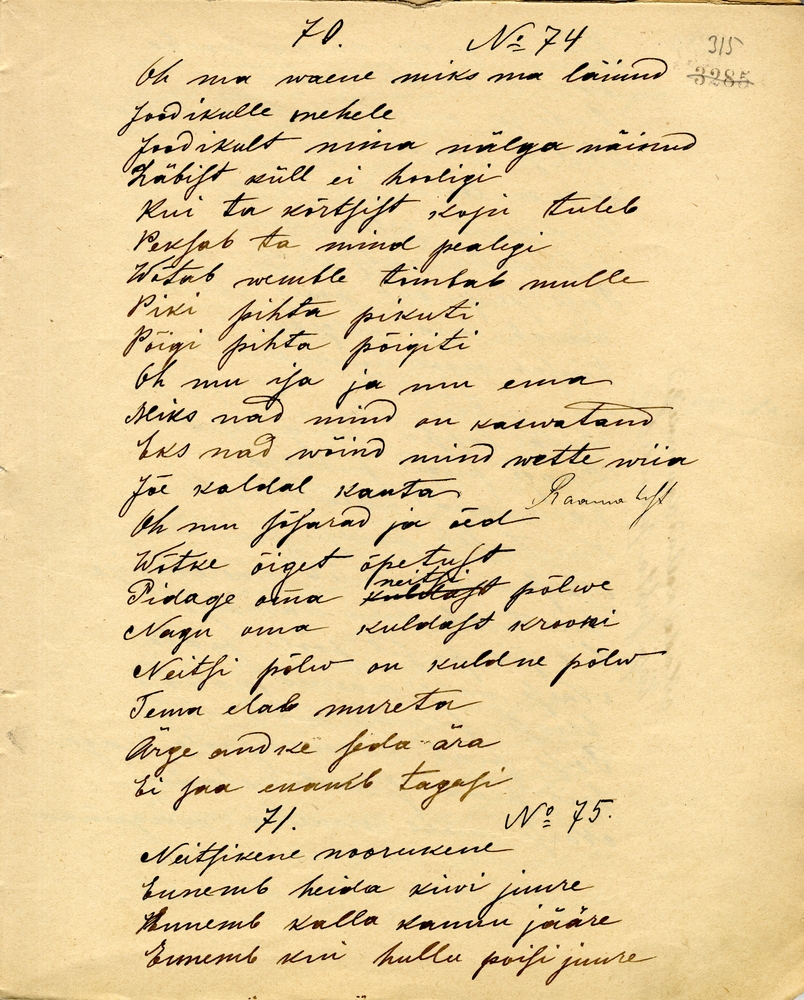 70. № 74
315
3285
Oh ma waene miks ma läinud
Joodikulle mehele
Joodikult nima nälga näinud
Läbist küll ei hooligi
Kui ta kõrtsist koju tuleb
Peksab ta mind pealegi
Wõtab wemble timbab mulle
Piki pihta pikuti
Põigi pihta põigiti
Oh mu isa ja mu ema
Miks nad mind on kaswatand
Eks nad wõind mind wette wiia
Jõe kaldal kauta
Oh mu sõsarad ja õed
Wõtke õiget õpetust
neitsi
Pidage oma kuldast põlwe
Nagu oma kuldast krooni
Neitsi põlw on kuldne põlw
Tema elab mureta
Ärge andke seda ära
Ei saa enamb tagasi
71. № 75.
Neitsikene noorukene
Ennemb heida kiwi juure
Ennemb kalla kannu jääre
Ennemb kui hullu poisi juure